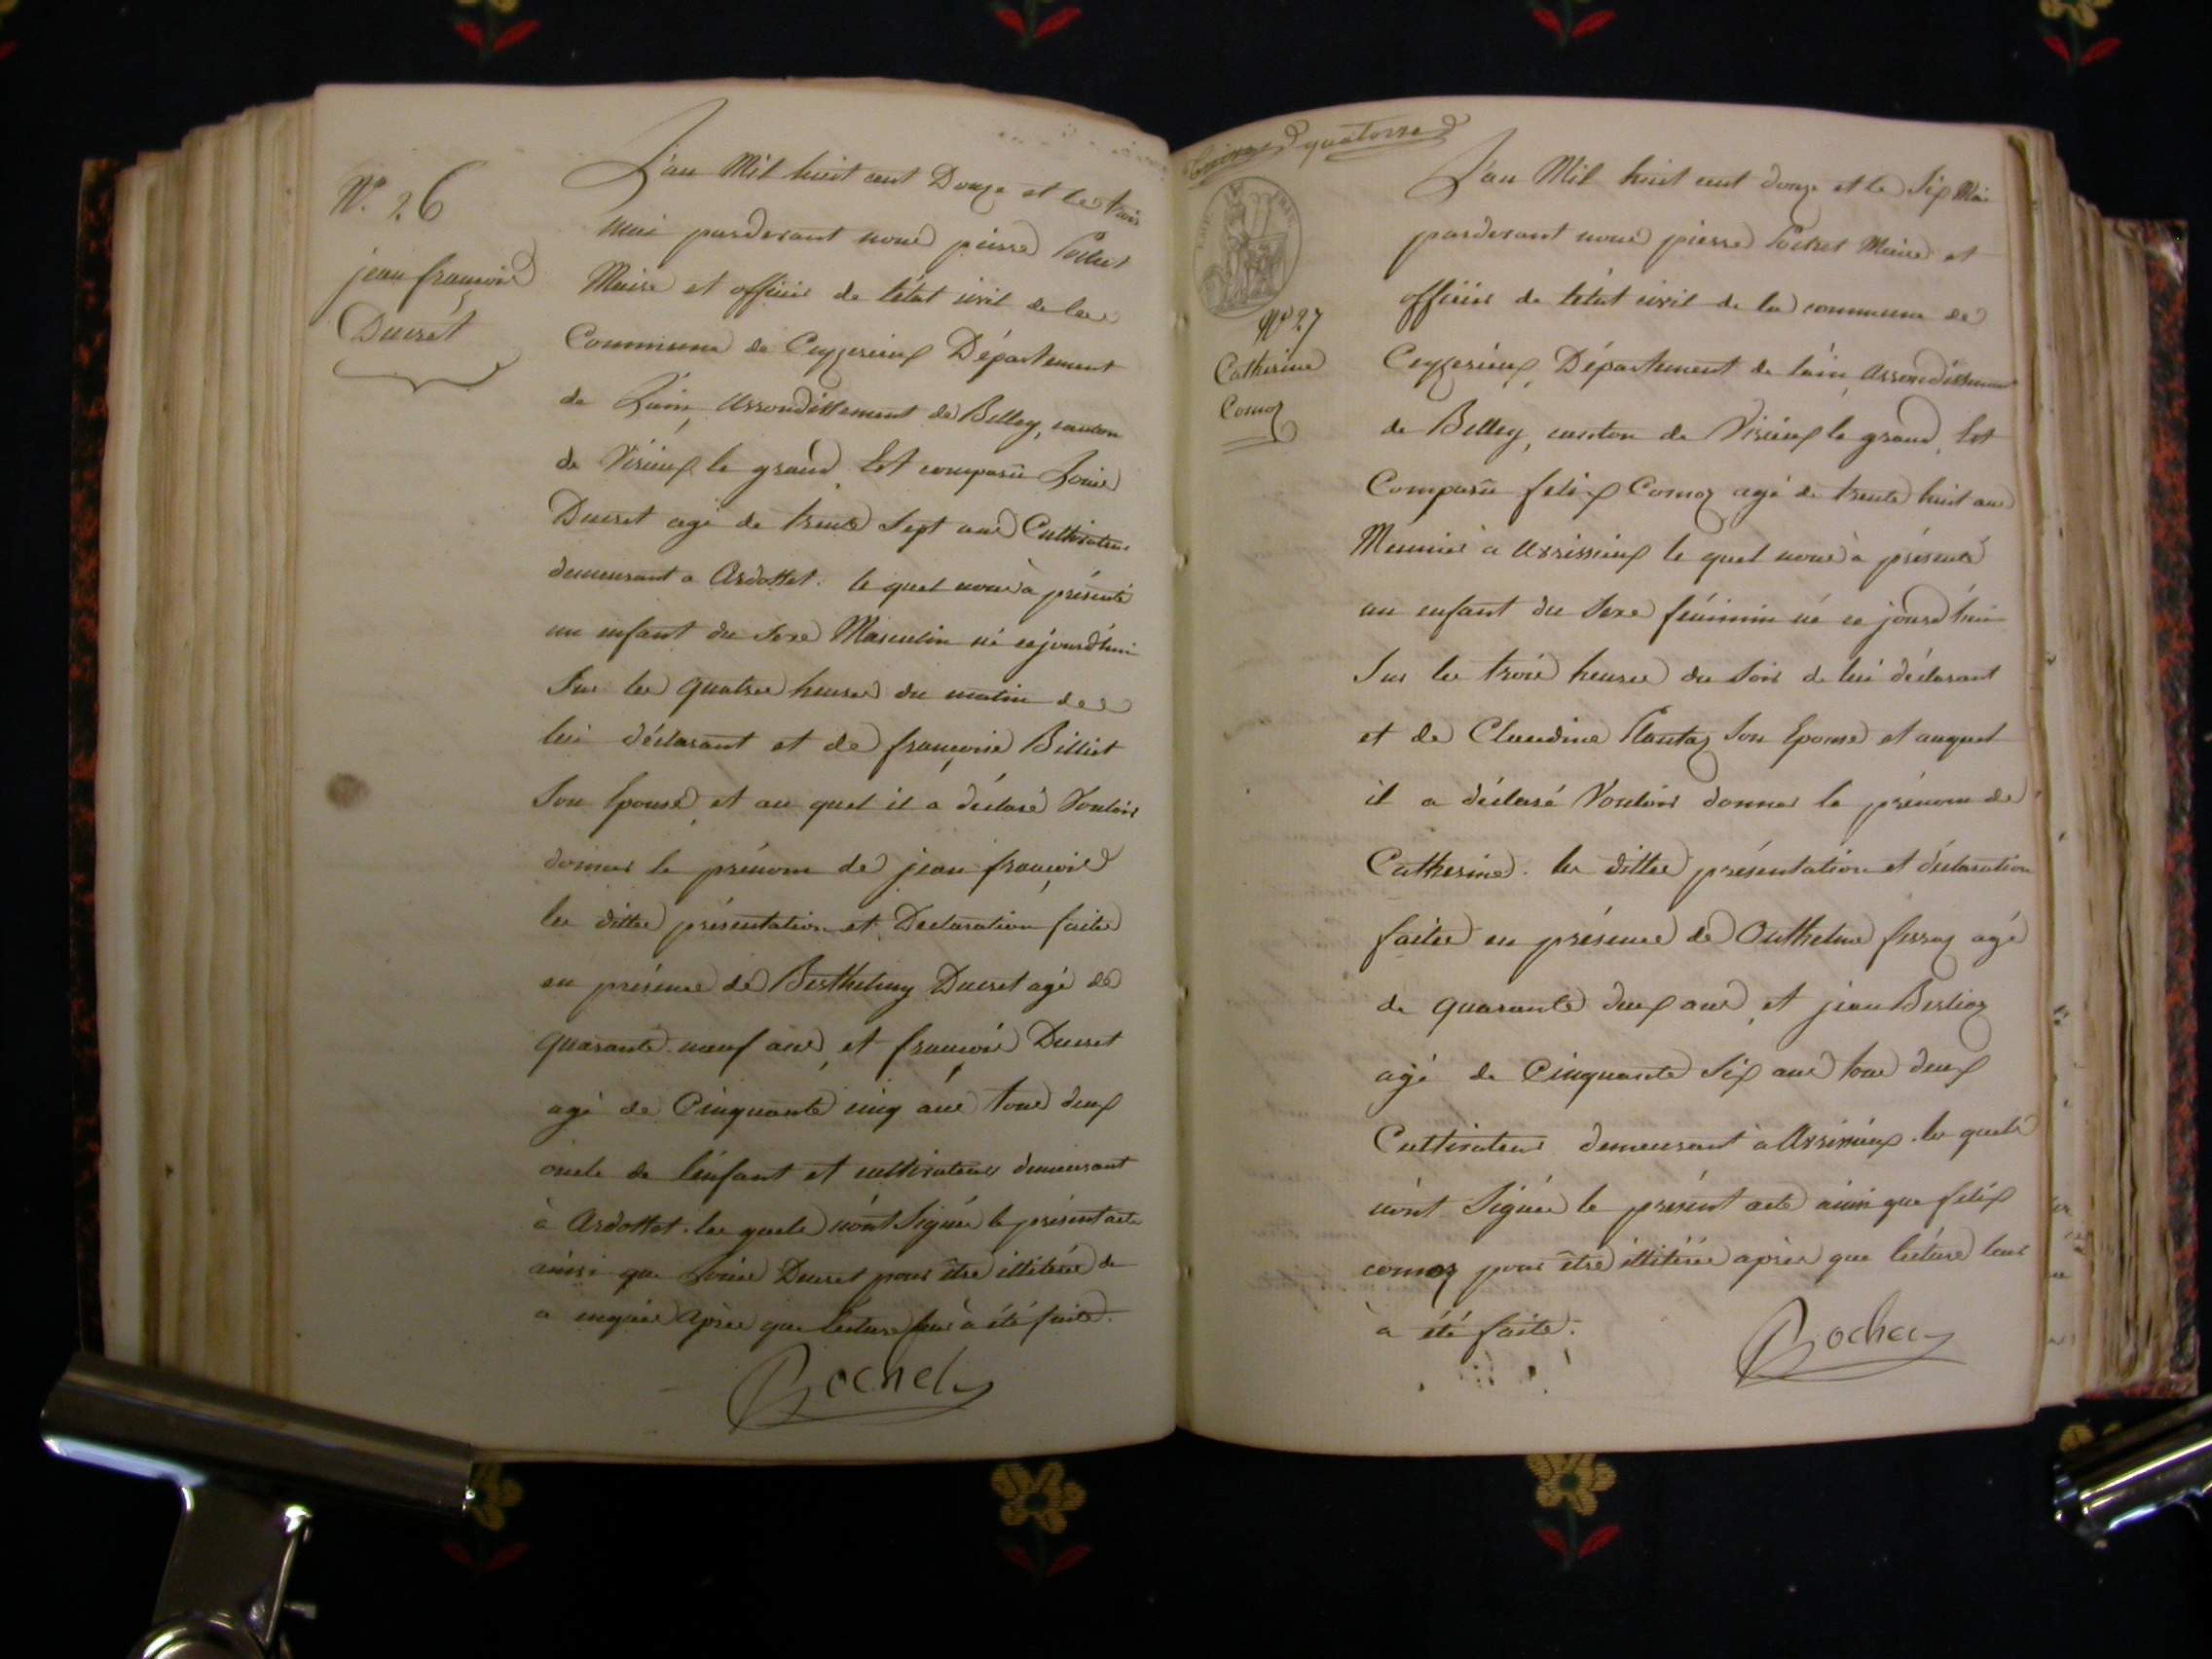 N.° 26
jean françois
Ducret
L'an Mil huit cent Douze et le trois
mai pardevant nous pierre
Maire et officier de l'état civil de la
Commune de Ceyzerieux Département
de L'ain, arrondissement de Belley, canton
de Virieux le grand. Est comparu Louis
Ducret agé de trente Sept ans Cultivateur
demeurant a Ardosset. le quel nous à présenté
un enfant du Sexe Masculin né cejourd'hui
Sur les quatre heures du matin de
lui déclarant et de françoise Billiet
Son Epouse, et au quel il a déclaré Vouloir
donner le prénom de jean françois
les dittes présentation et Declaration faites
en présence de Berthelmy Ducret agé de
quarante neuf ans, et françois Ducret
agé de Cinquante cinq ans tous deux
oncle de l'enfant et cultivateurs demeurant
à Ardosset. les quels n'ont Signés le présent acte
ainsi que Louis Ducret pour être illiterés de
ce enquis Après que lecture leur à été faite.
Rochet
quatorze
N° 27
Catherine
Comoz
L'an Mil huit cent douze et le Six Mai
pardevant nous pierre Maire et
officier de l'état civil de la commune de
Ceyzerieux, Département de l'ain, arrondissement
de Belley, canton de Virieux le grand, Est
Comparu felix Comoz agé de trente huit ans
Meunier à Avrissieux le quel nous à présenté
un enfant du Sexe féminin né ce jourd'hui
Sur les trois heures du Soir de lui déclarant
et de Claudine Plantaz Son Epouse et auquel
il a déclaré Vouloir donner le prénom de
Catherine. les dittes présentation et déclaration
faites en présence de Anthelme ferraz agé
de quarante deux ans, et jean Berlioz
agé de Cinquante Six ans tous deux
Cultivateurs demeurant à Avrissieux. les quels
n'ont Signés le présent acte ainsi que felix
comoz pour être illitérés après que lecture leur
à été faite.
Rochet